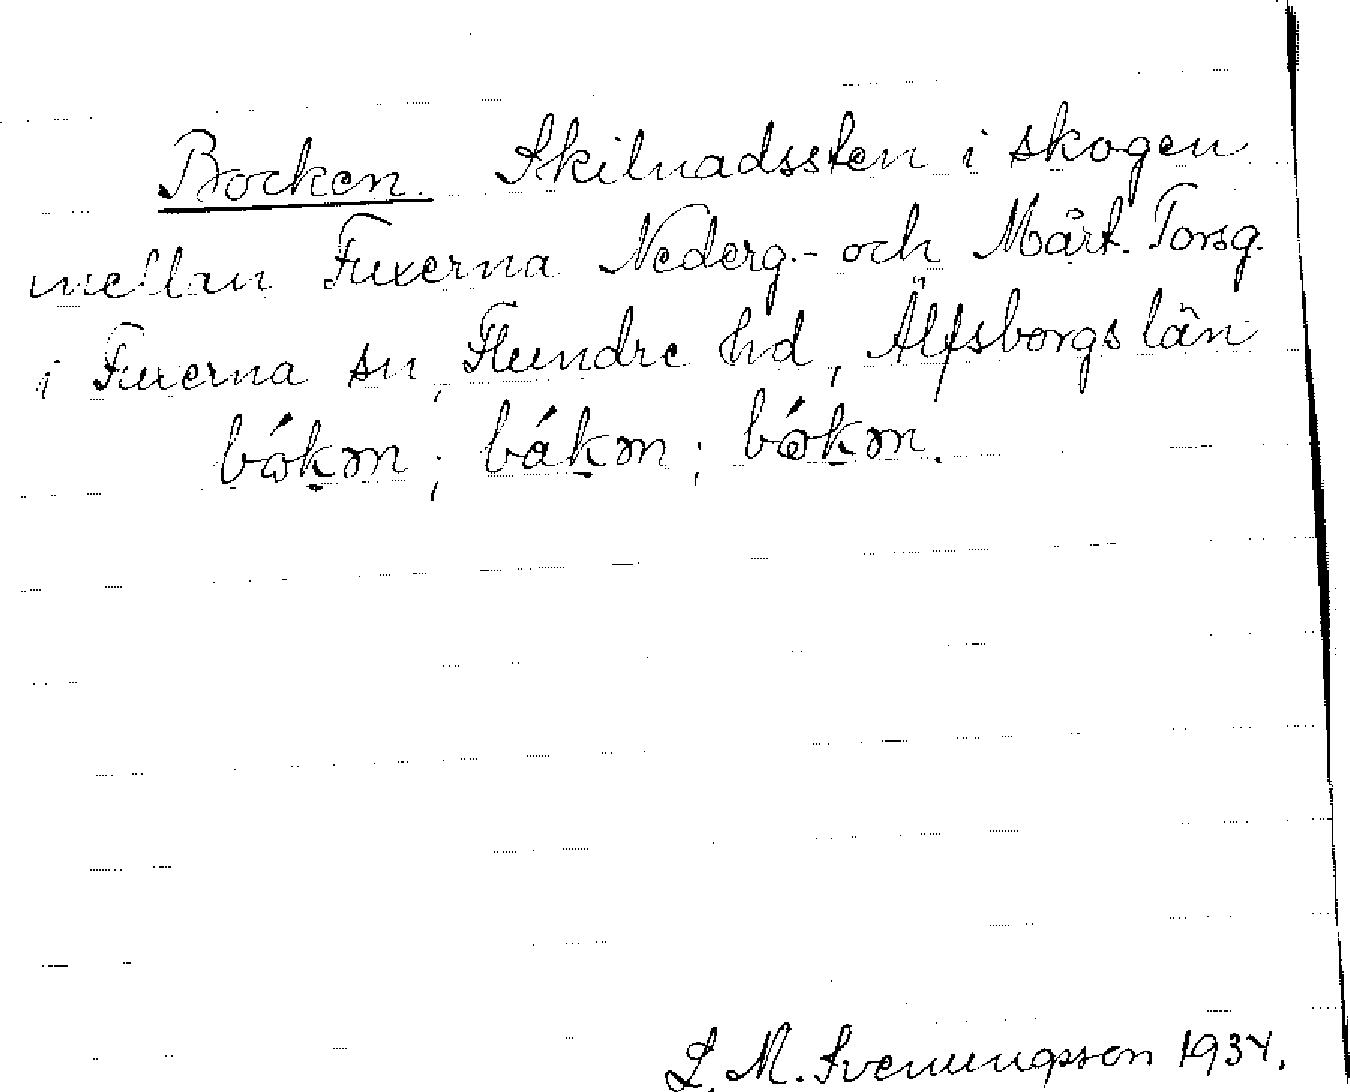 Bocken. Skilnadssten i skogen
mellan Fuxerna Nederg.- och Mårt. Torsg.
i Fuxerna sn, Flundre hd, Älfsborgs län
L. M. Svenungsson 1934.